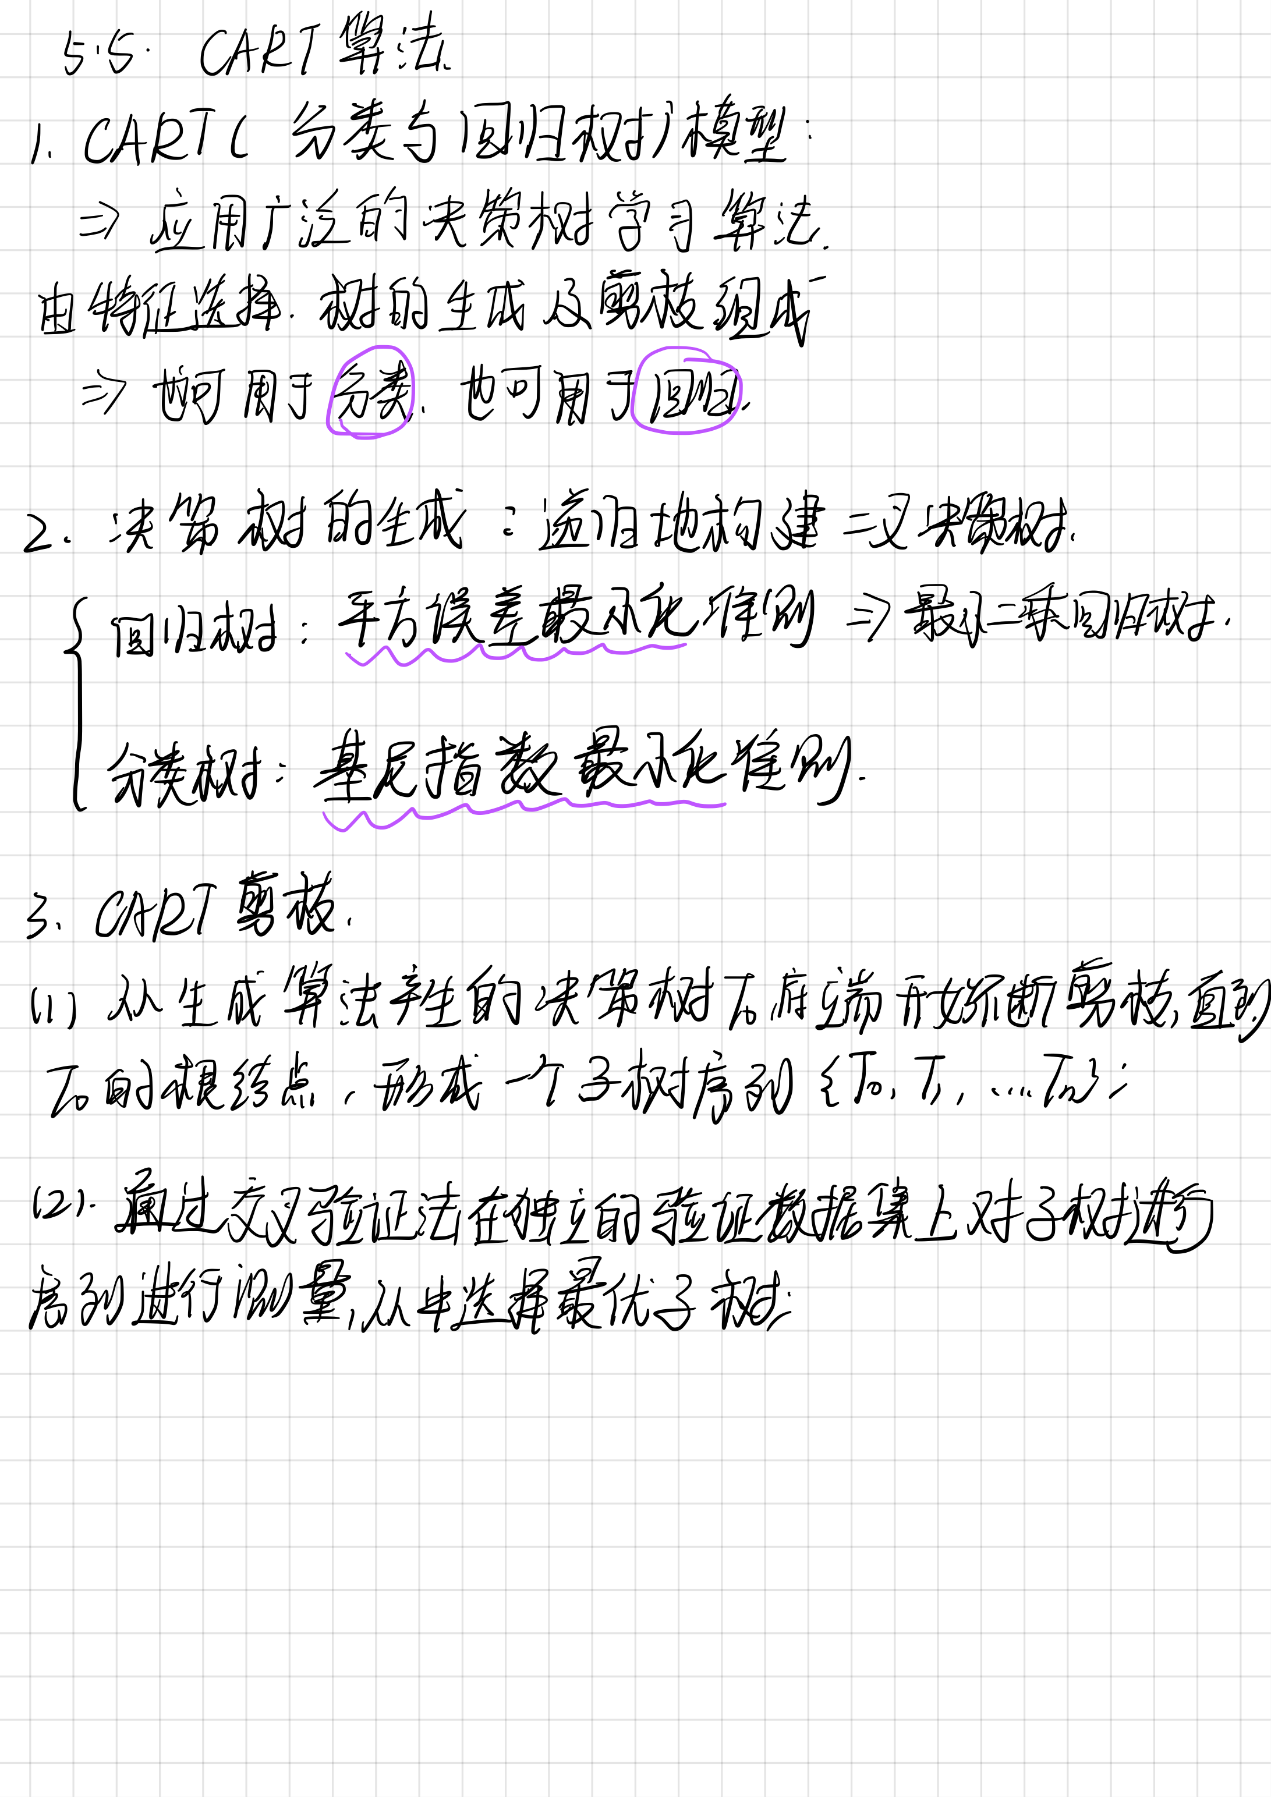 5.5. CART算法.
1. CART(分类与回归树)模型:
⇒ 应用广泛的决策树学习算法.
由特征选择. 树的生成及剪枝组成
⇒ 也可用于分类. 也可用于回归.
2. 决策树的生成:递归地构建二叉决策树.
回归树: 平方误差最小化准则 ⇒ 最小二乘回归树.
分类树: 基尼指数最小化准则.
3. CART剪枝.
(1) 从生成算法产生的决策树T₀底端开始不断剪枝,直到
T₀的根结点,形成一个子树序列{T₀, T₁, ...Tₙ};
(2). 通过交叉验证法在独立的验证数据集上对子树进行
序列进行测量,从中选择最优子树;